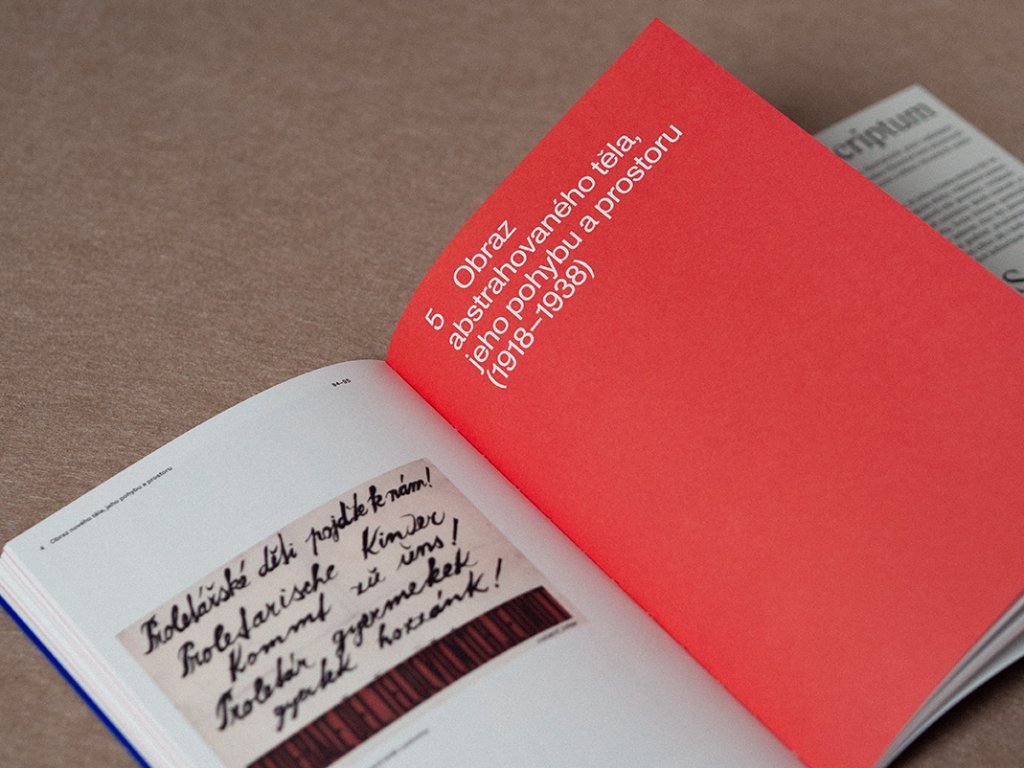 94–95
4 Obraz nového těla, jeho pohybu a prostoru
Proletářské děti pojďte k nám!
Proletarische Kinder
Kommt zŭ ŭns!
Proletár gyermekek
gyertek hozzánk!
5 Obraz
abstrahovaného těla,
jeho pohybu a prostoru
(1918–1938)
criptum